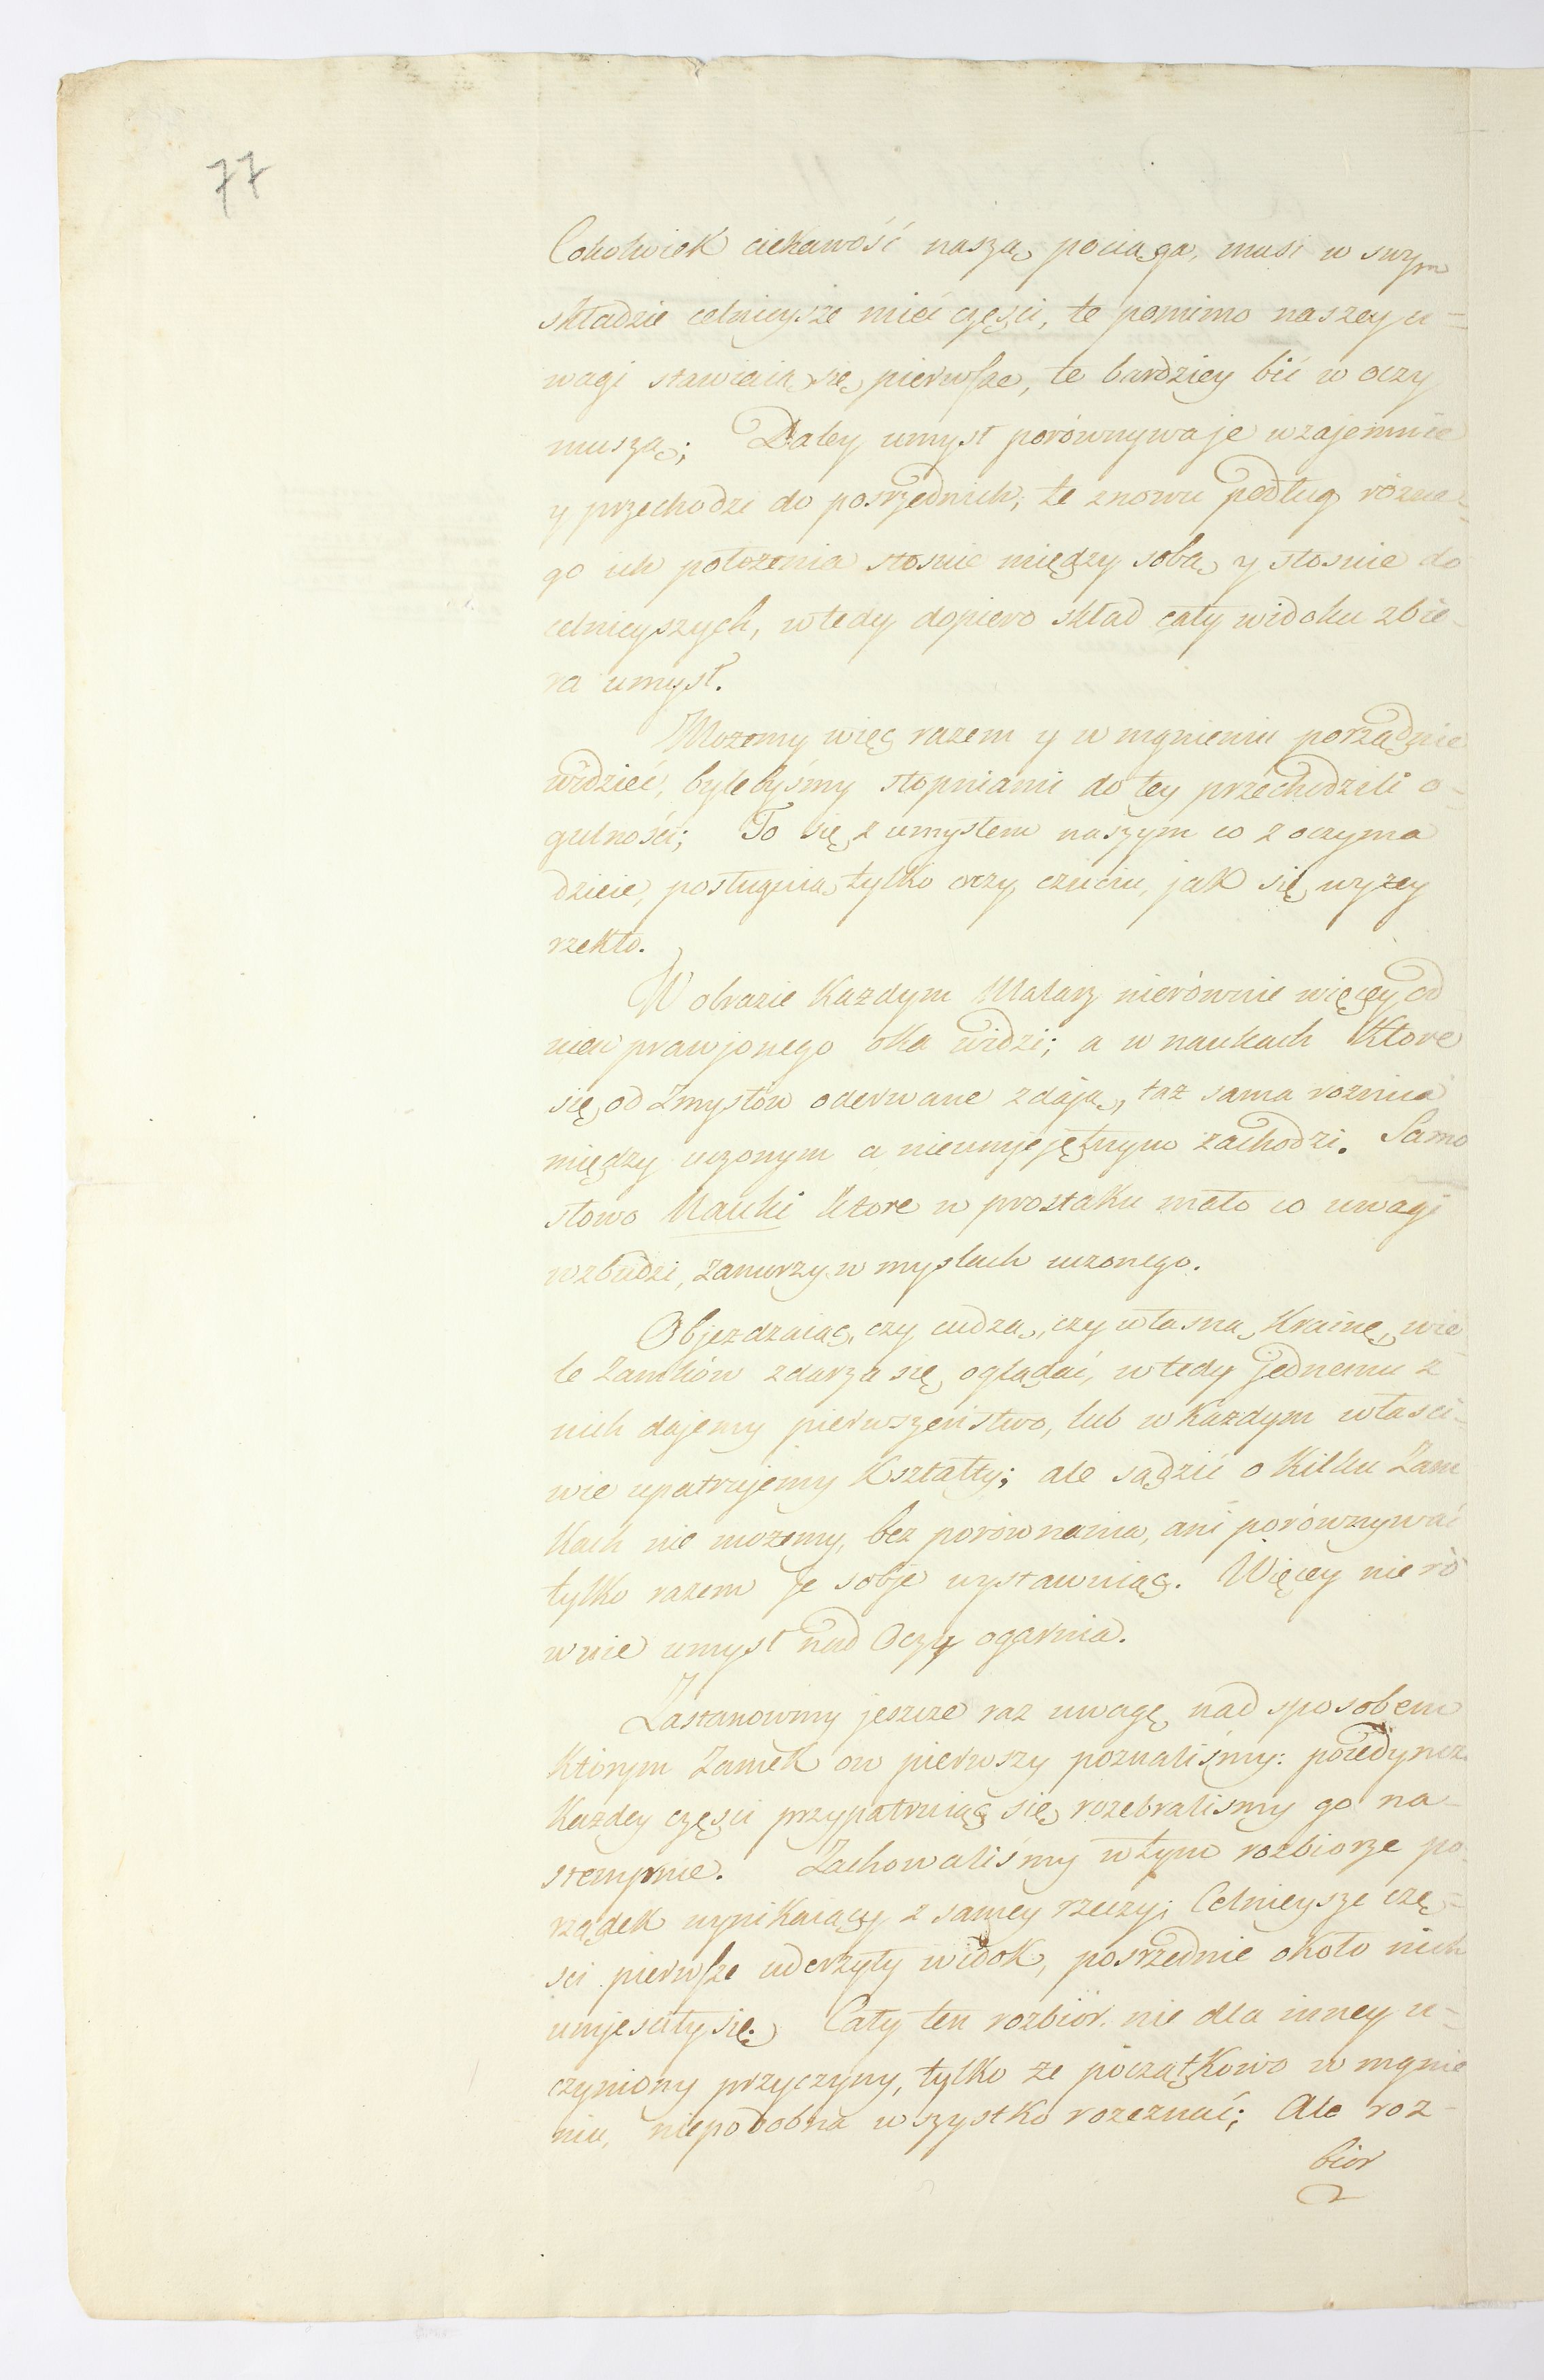 77
Cokolwiek ciekawość naszą pociąga, musi w swym
składzie celnieysze mieć części, te pomimo naszey u=
wagi stawiaią się pierwsze, te bardziey bić w oczy
muszą; Daley umysł porównywa je wzajemnie
y przechodzi do pośrzednich, te znowu podług rózne=
go ich położenia stosuie między sobą y stosuie do
celnieyszych, wtedy dopiero skład cały widoku zbie-
ra umysł.
Możemy więc razem y w mgnieniu porządnie
widzieć, bylebyśmy stopniami do tey przechodzili o=
gulności; To się z umysłem naszym co z oczyma
dzieie, posługuią tylko oczy czuciu, jak się wyżey
rzekło.
W obrazie każdym Malarz nierównie więcey od
niewprawjonego oka widzi; a w naukach które
się od zmysłów oderwane zdają, taż sama roznica
między uczonym a nieumjejętnym zachodzi. Samo
słowo Nauki które w prostaku mało co uwagi
wzbudzi, zanurzy w myslach uczonego.
Objezdzaiąc, czy cudzą, czy własną Krainę, wie=
le Zamków zdarza się oglądać, wtedy jednemu z
nich dajemy pierwszeństwo, lub w każdym właści=
wie upatrujemy kształty; ale sądzić o kilku Zam
kach nie możemy, bez porównania, ani porównywać
tylko razem je sobje wystawuiąc. Więcey nieró
wnie umysł nad Oczy ogarnia.
Zastanowmy jeszcze raz uwagę nad sposobem
którym Zamek ów pierwszy poznaliśmy: poiedyncz.
każdey części przypatruiąc się rozebralismy go na-
stempnie. Zachowaliśmy w tym rozbiorze po
rządek wynikaiący z samey rzeczy; Celnieysze czę=
sci pierwsze uderzyły widok, pośrzednie około nich
umjesciły się. Cały ten rozbiór nie dla inney u=
czyniony przyczyny, tylko że początkowo w mgnie
niu, niepodobna wszystko rozeznać; Ale roz-
biór